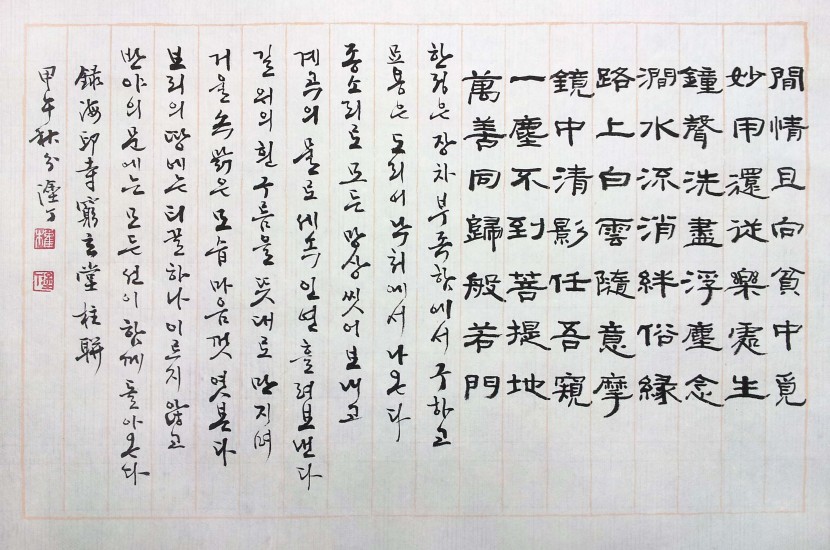 閒情且向貧中覓
妙用還從樂處生
鐘聲洗盡浮塵念
澗水流消絆俗緣
路上白雲隨意摩
鏡中清影任吾窺
一塵不到菩提地
萬善同歸般若門
한정은 장차 부족함에서 구하고
묘용은 도리어 낙처에서 나온다
종소리로 모든 망상 씻어 보내고
계곡의 물로 세속 인연 흘려보낸다
길 위의 흰 구름을 뜻대로 만지며
거울 속 맑은 모습 마음껏 엿본다
보리의 땅에는 티끌 하나 이르지 않고
반야의 문에는 모든 선이 함께 돌아온다
錄海印寺窮玄堂柱聯
甲午秋分